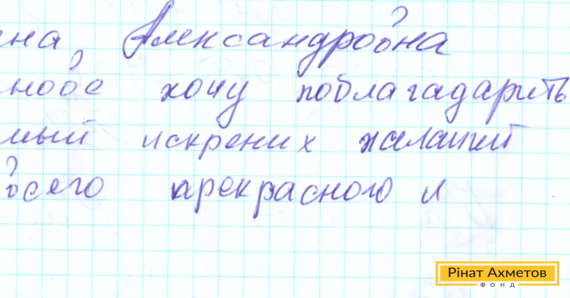 на Александровна
хочу поблагадарить
искрених
всего прекрасного и
Рінат Ахметов
ФОНД